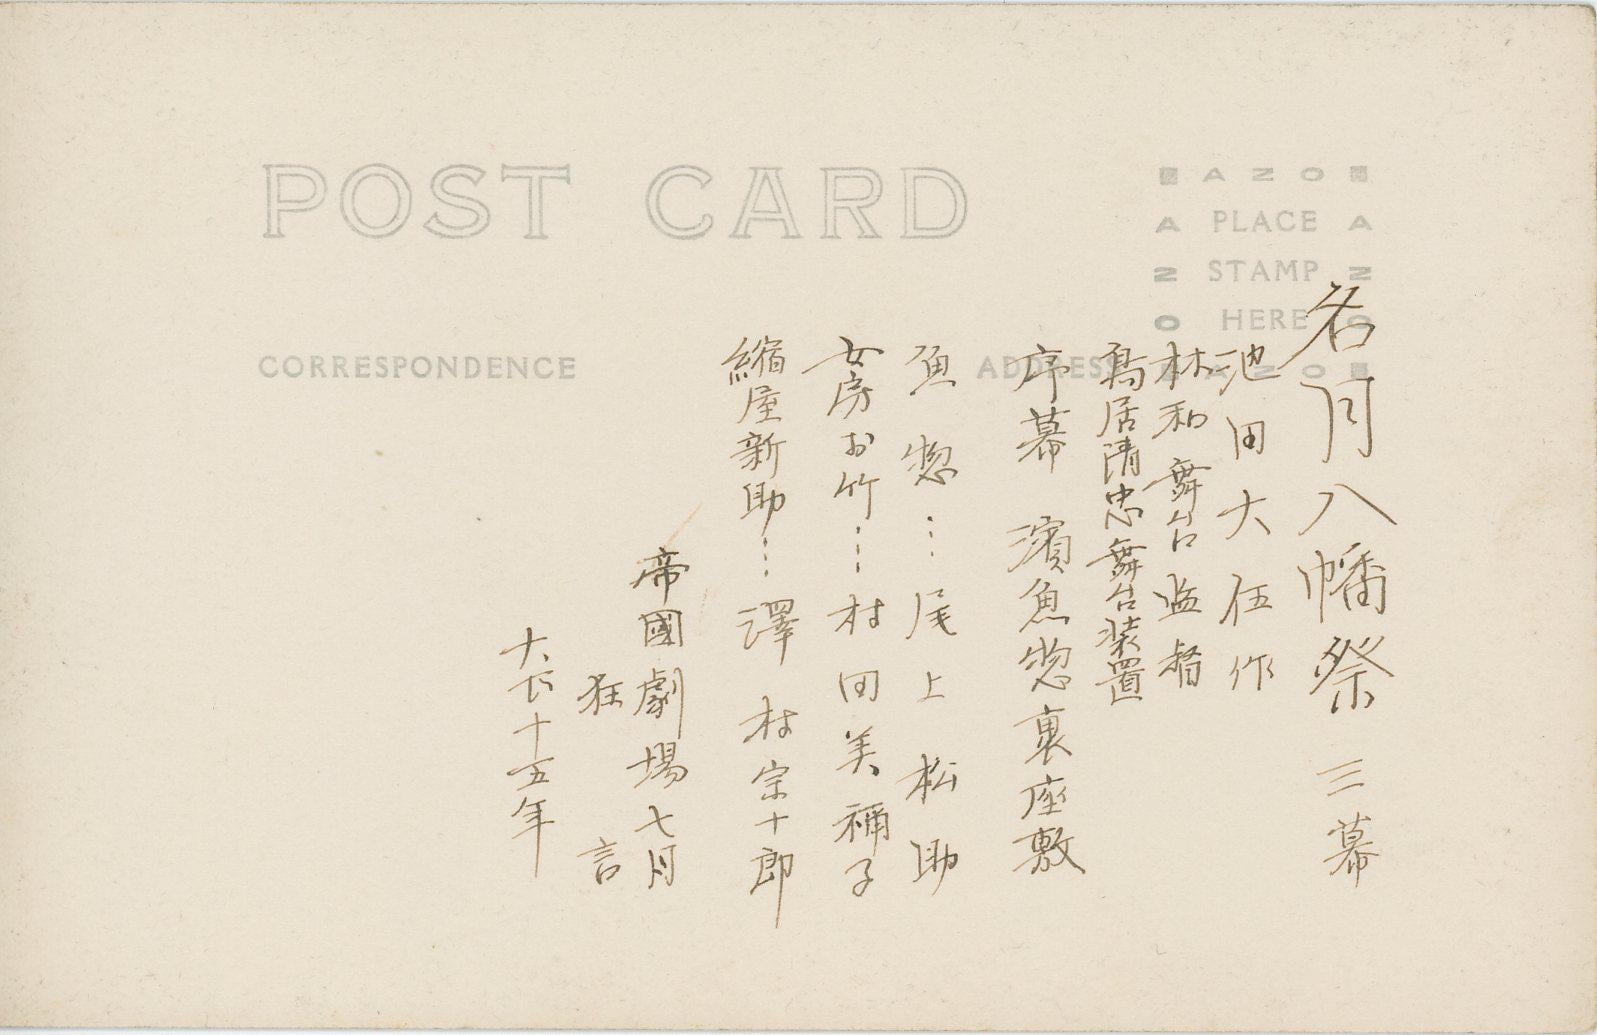 POST CARD
AZO
PLACE
STAMP
HERE
CORRESPONDENCE
ADDRESS
名月八幡祭 三幕
池田大伍作
林和 舞台監督
鳥居清忠舞台装置
序幕 濱魚惣裏座敷
魚惣…尾上松助
女房お竹…村田美禰子
縮屋新助…澤村宗十郎
帝國劇場七月
狂言
大正十五年